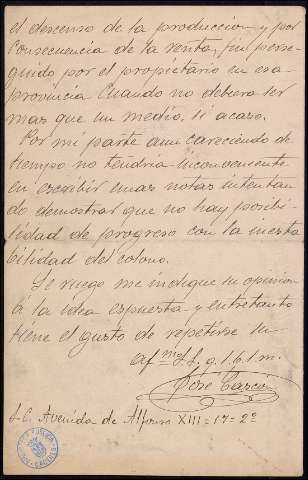 el descenso de la produccion y por
consecuencia de la renta, fin perse-
guido por el propietario en esa
provincia cuando no debera ser
mas que un medio, si acaso.
Por mi parte aun careciendo de
tiempo no tendria inconveniente
en escribir unas notas intentan
do demostrar que no hay posibi-
lidad de progreso con la inesta
bilidad del colono.
Le ruego me indique su opinion
á la idea expuesta y entretanto
tiene el gusto de repetirse su
af mo S.S. q. l. b. l. m.
Jose Garcia
S.C. Avenida de Alfonso XIII=17=2º